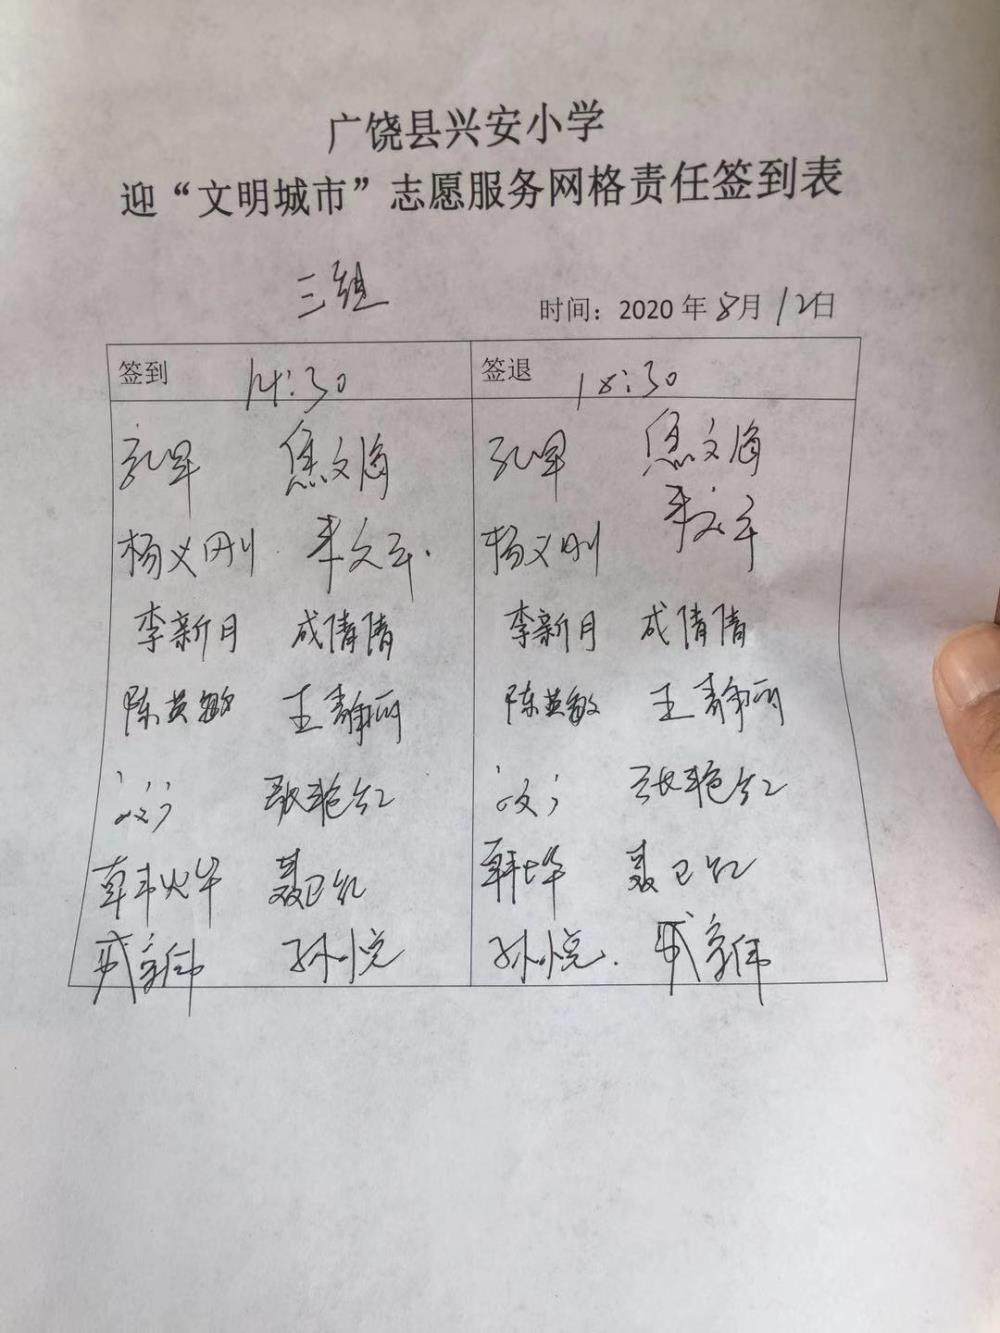 广饶县兴安小学
迎“文明城市”志愿服务网格责任签到表
三组
时间：2020年8月12日
签到 14:30 签退 18:30
焦文海 焦文海
杨义刚 杨义刚
李新月 成倩倩 李新月 成倩倩
陈英敏 王静丽 陈英敏 王静丽
张艳红 张艳红
韩烨 聂卫红 韩烨 聂卫红
孙悦 孙悦.